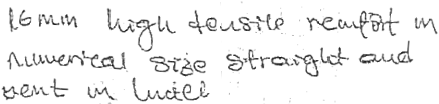 16mm high tensile reinfort in
numerical size straight and
bent in